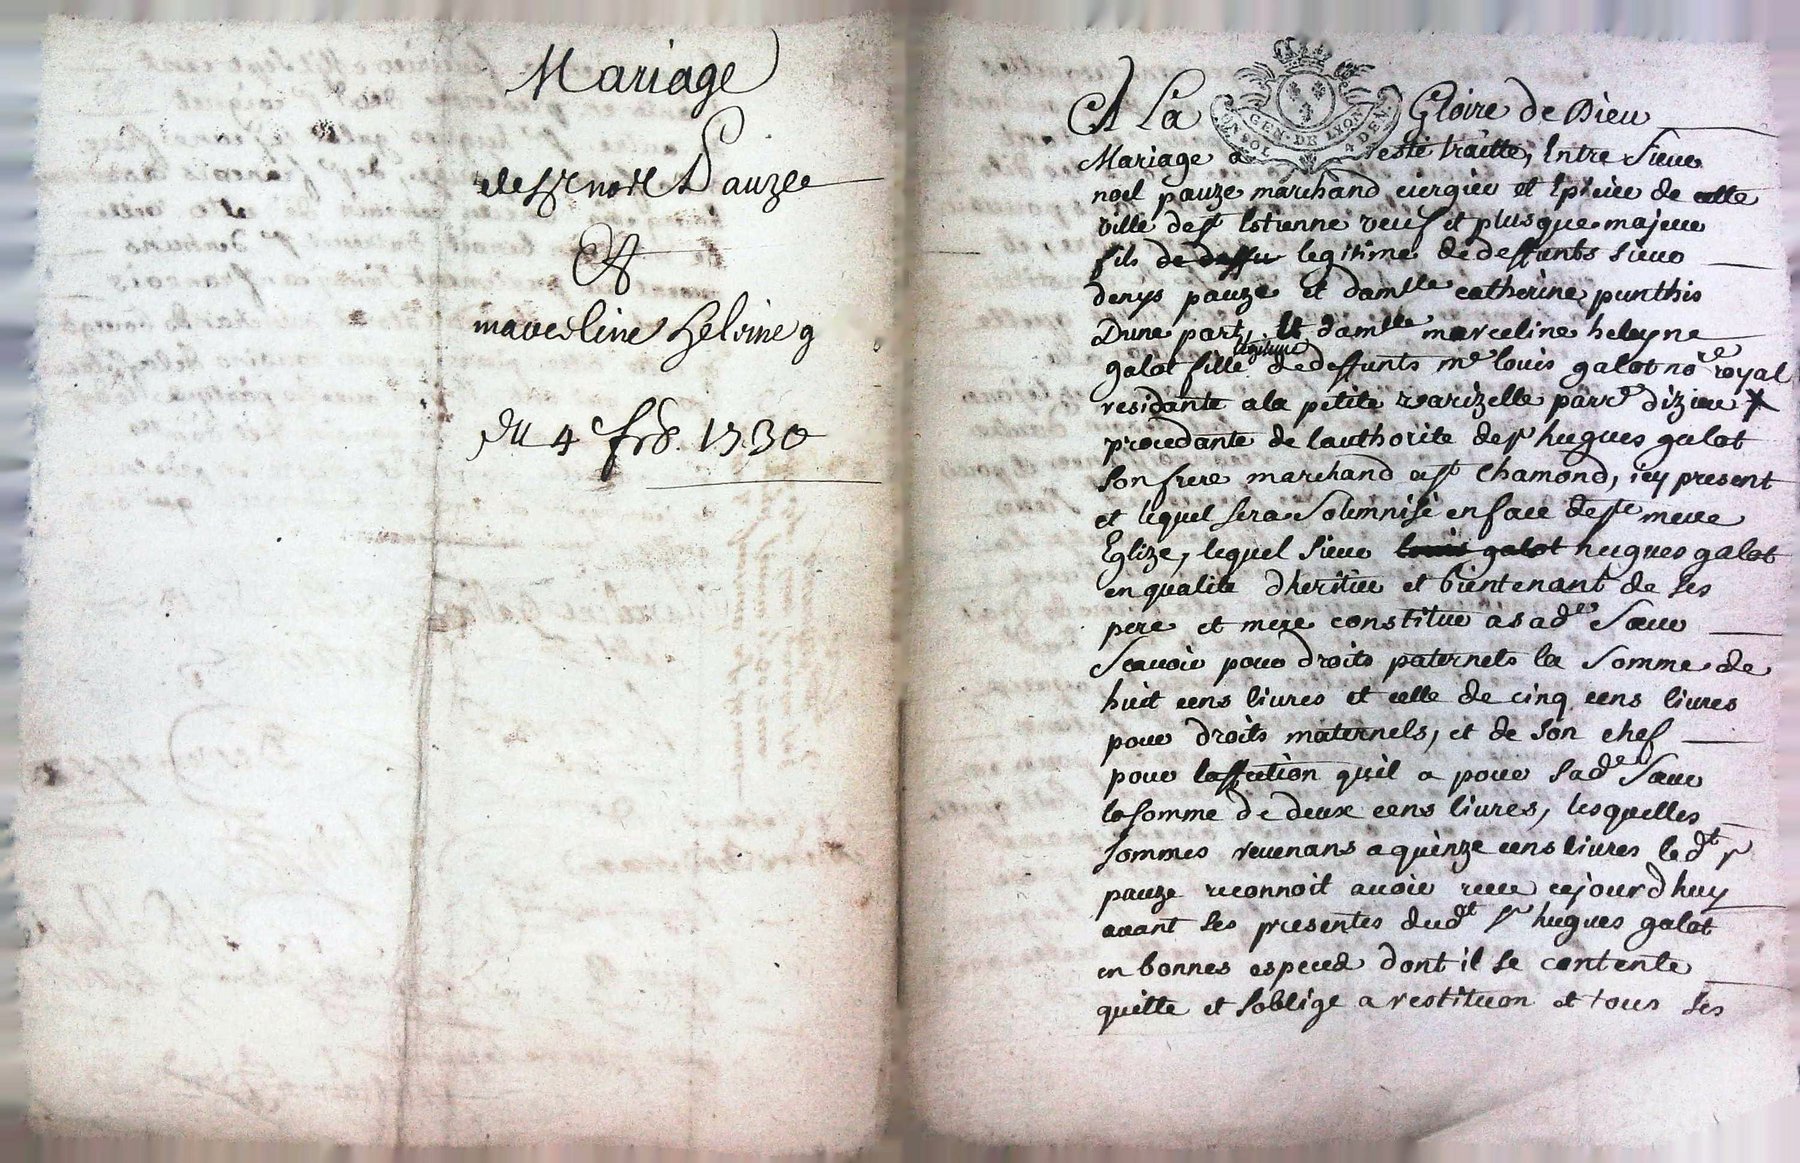 Mariage
de Sr noel Pauze
Et
marceline Heleine g
du 4e fr8. 1730
A La Gloire de Dieu
GEN. DE LYON
UN SOL 4 DEN.
Mariage a esté traitte, Entre Sieur
noel pauze marchand ciergier et Epicier de cette
ville de St Estienne veuf et plus que majeur
fils de legitime de deffunts sieur
denys pauze et damlle catherine punthis
Dune part, Et damlle marceline heleyne
galot fille legitime de deffunts me louis galot nore royal
residante a la petite varizelle parre dizieu
procedante de lauthorite de sr hugues galot
son frere marchand a st Chamond, icy present
et lequel sera Solemnisé en face de ste mere
Eglize, lequel sieur louis galot hugues galot
en qualite dheritier et bientenant de ses
pere et mere constitue a sade Sœur
Scauoir pour droits paternels la Somme de
huit cens liures et celle de cinq cens liures
pour droits maternels, et de son chef
pour laffection quil a pour sade Sœur
la somme de deux cens liures, lesquelles
sommes reuenans a quinze cens liures ledt sr
pauze reconnoit auoir receu cejourdhuy
auant ses presentes dudt sr hugues galot
en bonnes especes dont il se contente
quitte et soblige a restituon et tous ses